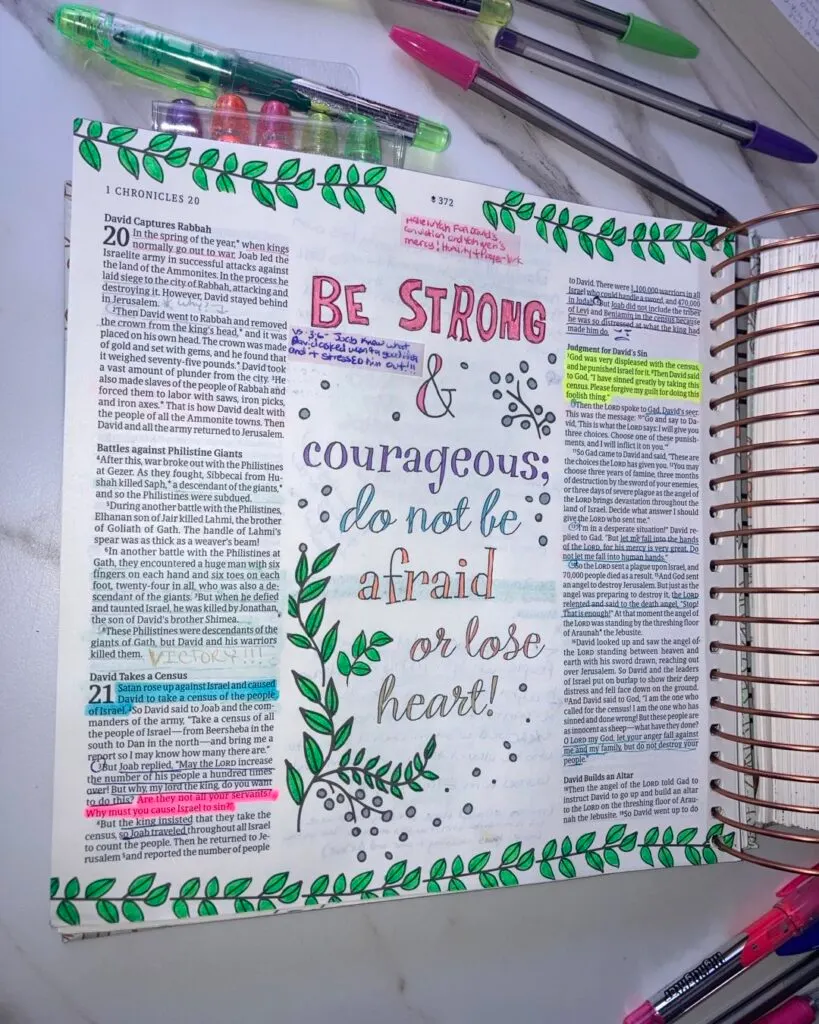 1 CHRONICLES 20
372
David Captures Rabbah
20 In the spring of the year,* when kings
normally go out to war, Joab led the
Israelite army in successful attacks against
the land of the Ammonites. In the process he
laid siege to the city of Rabbah, attacking and
destroying it. However, David stayed behind
in Jerusalem. Why?
2Then David went to Rabbah and removed
the crown from the king's head,* and it was
placed on his own head. The crown was made
of gold and set with gems, and he found that
it weighed seventy-five pounds.* David took
a vast amount of plunder from the city. 3He
also made slaves of the people of Rabbah and
forced them to labor with saws, iron picks,
and iron axes.* That is how David dealt with
the people of all the Ammonite towns. Then
David and all the army returned to Jerusalem.
Battles against Philistine Giants
4After this, war broke out with the Philistines
at Gezer. As they fought, Sibbecai from Hu-
shah killed Saph,* a descendant of the giants,*
and so the Philistines were subdued.
5During another battle with the Philistines,
Elhanan son of Jair killed Lahmi, the brother
of Goliath of Gath. The handle of Lahmi's
spear was as thick as a weaver's beam!
6In another battle with the Philistines at
Gath, they encountered a huge man with six
fingers on each hand and six toes on each
foot, twenty-four in all, who was also a de-
scendant of the giants. 7But when he defied
and taunted Israel, he was killed by Jonathan,
the son of David's brother Shimea.
8These Philistines were descendants of the
giants of Gath, but David and his warriors
killed them. VICTORY!!!
David Takes a Census
21 Satan rose up against Israel and caused
David to take a census of the people
of Israel. 2So David said to Joab and the com-
manders of the army, "Take a census of all
the people of Israel—from Beersheba in the
south to Dan in the north—and bring me a
report so I may know how many there are."
3But Joab replied, "May the LORD increase
the number of his people a hundred times
over! But why, my lord the king, do you want
to do this? Are they not all your servants?
Why must you cause Israel to sin?"
4But the king insisted that they take the
census, so Joab traveled throughout all Israel
to count the people. Then he returned to Je-
rusalem 5and reported the number of people
mercy! Humility + prayer
BE STRONG
vs 3-6 Joab knew what
David asked wasn't a good idea
and it STRESSED him out!!
&
courageous;
do not be
afraid
or lose
heart!
to David. There were 1,100,000 warriors in all
Israel who could handle a sword, and 470,000
in Judah. 6But Joab did not include the tribes
of Levi and Benjamin in the census because
he was so distressed at what the king had
made him do.
Judgment for David's Sin
7God was very displeased with the census,
and he punished Israel for it. 8Then David said
to God, "I have sinned greatly by taking this
census. Please forgive my guilt for doing this
foolish thing."
9Then the LORD spoke to Gad, David's seer.
This was the message: 10"Go and say to Da-
vid, 'This is what the LORD says: I will give you
three choices. Choose one of these punish-
ments, and I will inflict it on you.'"
11So Gad came to David and said, "These are
the choices the LORD has given you. 12You may
choose three years of famine, three months
of destruction by the sword of your enemies,
or three days of severe plague as the angel of
the LORD brings devastation throughout the
land of Israel. Decide what answer I should
give the LORD who sent me."
13"I'm in a desperate situation!" David re-
plied to Gad. "But let me fall into the hands
of the LORD, for his mercy is very great. Do
not let me fall into human hands."
14So the LORD sent a plague upon Israel, and
70,000 people died as a result. 15And God sent
an angel to destroy Jerusalem. But just as the
angel was preparing to destroy it, the LORD
relented and said to the death angel, "Stop!
That is enough!" At that moment the angel of
the LORD was standing by the threshing floor
of Araunah* the Jebusite.
16David looked up and saw the angel of
the LORD standing between heaven and
earth with his sword drawn, reaching out
over Jerusalem. So David and the leaders
of Israel put on burlap to show their deep
distress and fell face down on the ground.
17And David said to God, "I am the one who
called for the census! I am the one who has
sinned and done wrong! But these people are
as innocent as sheep—what have they done?
O LORD my God, let your anger fall against
me and my family, but do not destroy your
people."
David Builds an Altar
18Then the angel of the LORD told Gad to
instruct David to go up and build an altar
to the LORD on the threshing floor of Arau-
nah the Jebusite. 19So David went up to do